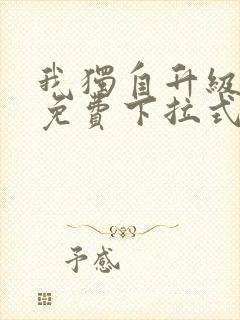 我獨自升級
免費下拉式
予感